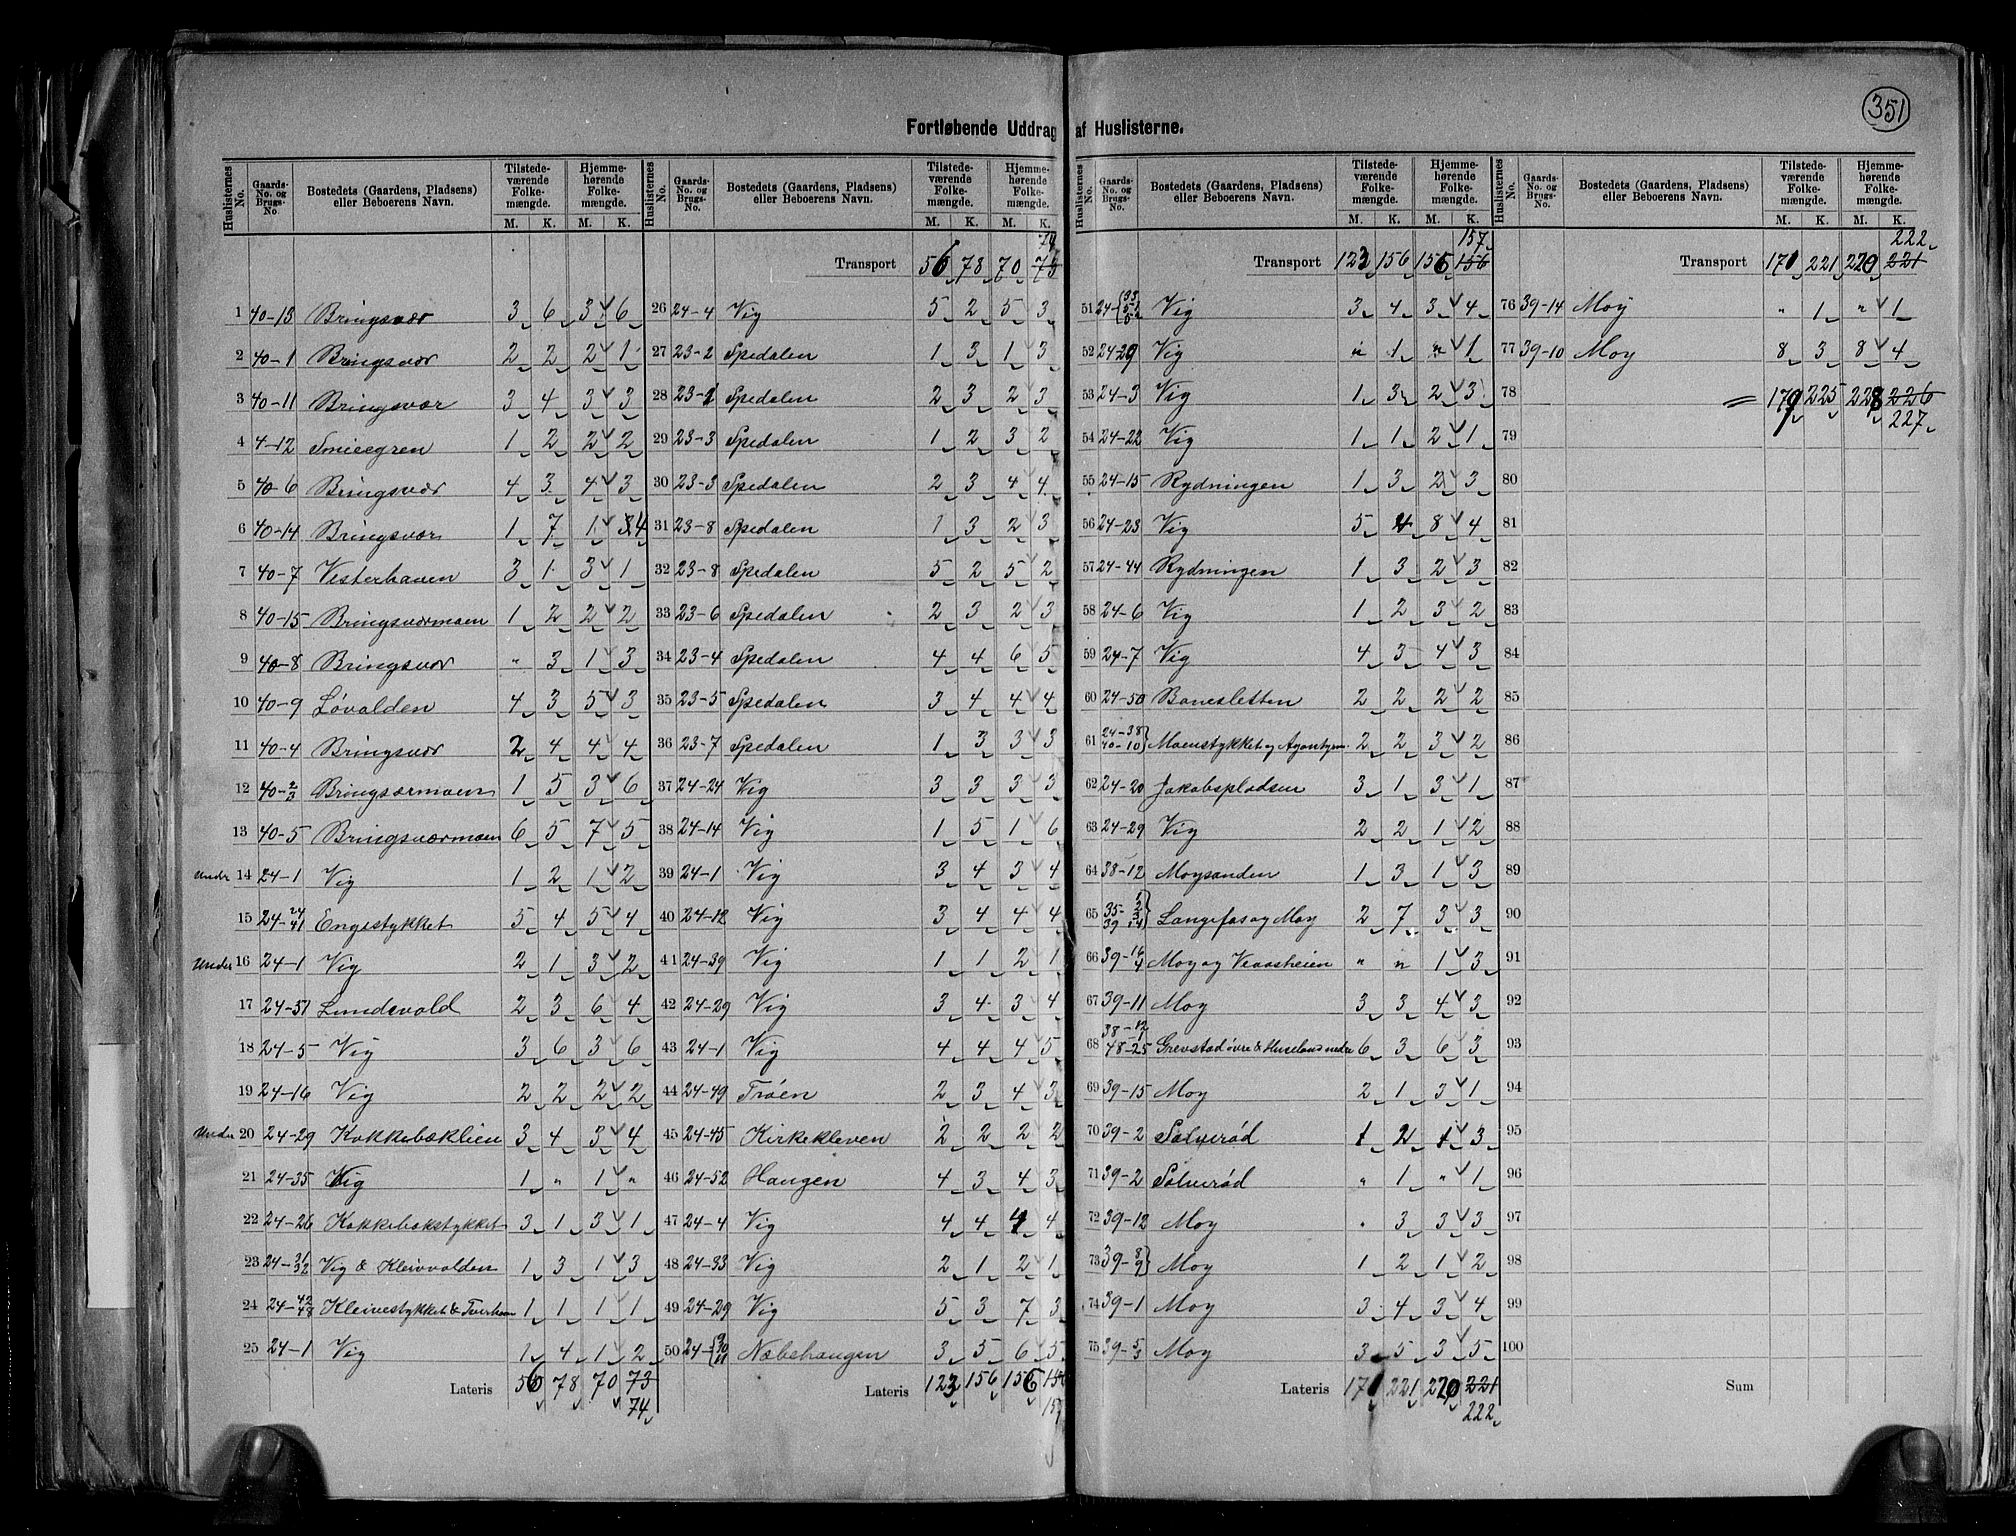 351
Fortløbende Uddrag af Huslisterne.
Huslisternes No. Gaards-No. og Brugs-No. Bostedets (Gaardens, Pladsens) eller Beboerens Navn. Tilstedeværende Folkemængde. M. K. Hjemmehørende Folkemængde. M. K.
1 40-13 Bringsvær 3 6 3 6
2 40-1 Bringsvær 2 2 2 1
3 40-11 Bringsvær 3 4 3 3
4 4-12 1 2 2 2
5 40-6 Bringsvær 4 3 4 3
6 40-14 Bringsvær 1 7 1 34
7 40-7 Vesterhaven 3 1 3 1
8 40-15 Bringsværmoen 1 2 2 2
9 40-8 Bringsvær " 3 1 3
10 40-9 Løvalden 4 3 5 3
11 40-4 Bringsvær 2 4 4 4
12 40-2/3 Bringsærmoen 1 5 3 6
13 40-5 Bringsværmoen 6 5 7 5
Under 14 24-1 Vig 1 2 1 2
15 24-24/41 Engestykket 5 4 5 4
Under 16 24-1 Vig 2 1 3 2
17 24-37 Lundevold 2 3 6 4
18 24-5 Vig 3 6 3 6
19 24-16 Vig 2 2 2 2
Under 20 24-29 Kokkebæklien 3 4 3 4
21 24-35 Vig 1 " 1 "
22 24-26 Kokkebækstykket 3 1 3 1
23 24-31/32 Vig & Kleivvolden 1 3 1 3
24 24-42/48 Kleivestykket & 1 1 1 1
25 24-1 Vig 1 4 1 2
Lateris 56 78 70 73
74
Huslisternes No. Gaards-No. og Brugs-No. Bostedets (Gaardens, Pladsens) eller Beboerens Navn. Tilstedeværende Folkemængde. M. K. Hjemmehørende Folkemængde. M. K.
74
Transport 56 78 70 73
26 24-4 Vig 5 2 5 3
27 23-2 Spedalen 1 3 1 3
28 23-1 Spedalen 2 3 2 3
29 23-3 Spedalen 1 2 3 2
30 23-3 Spedalen 2 3 4 4
31 23-8 Spedalen 1 3 2 3
32 23-8 Spedalen 5 2 5 2
33 23-6 Spedalen 2 3 2 3
34 23-4 Spedalen 4 4 6 5
35 23-5 Spedalen 3 4 4 4
36 23-7 Spedalen 1 3 3 3
37 24-24 Vig 3 3 3 3
38 24-14 Vig 1 5 1 6
39 24-1 Vig 3 4 3 4
40 24-12 Vig 3 4 4 4
41 24-39 Vig 1 1 2 1
42 24-29 Vig 3 4 3 4
43 24-1 Vig 4 4 4 5
44 24-49 Trøen 2 3 4 3
45 24-45 Kirkekleven 2 2 2 2
46 24-52 Haugen 4 3 4 3
47 24-4 Vig 4 4 4 4
48 24-33 Vig 2 1 2 1
49 24-29 Vig 5 3 7 3
50 24- Næbehaugen 3 5 6 5
Lateris 123 156 156
Huslisternes No. Gaards-No. og Brugs-No. Bostedets (Gaardens, Pladsens) eller Beboerens Navn. Tilstedeværende Folkemængde. M. K. Hjemmehørende Folkemængde. M. K.
157
Transport 123 156 156 156
51 24- Vig 3 4 3 4
52 24-29 Vig " 1 " 1
53 24-3 Vig 1 3 2 3
54 24-22 Vig 1 1 2 1
55 24-15 Rydningen 1 3 2 3
56 24-23 Vig 5 4 8 4
57 24-44 Rydningen 1 3 2 3
58 24-6 Vig 1 2 3 2
59 24-7 Vig 4 3 4 3
60 24-50 Banesletten 2 2 2 2
61 24-38 40-10 Moenstykket og 2 2 3 2
62 24-20 Jakobspladsen 3 1 3 1
63 24-29 Vig 2 2 1 2
64 38-12 Moysanden 1 3 1 3
65 Langefos og Moy 2 7 3 3
66 39-16/4 Moy og " " 1 3
67 39-11 Moy 3 3 4 3
68 38-12/1 48-25 Grevstad øvre & Huseland nedre 6 3 6 3
69 39-15 Moy 2 1 3 1
70 39-2 Solverød 1 2 1 3
71 39-2 Solverød " 1 " 1
72 39-12 Moy " 3 3 3
73 39-8/9 Moy 1 2 1 2
74 39-1 Moy 3 4 3 4
75 39-5/3 Moy 3 5 3 5
Lateris 171 221 220 221
222
Huslisternes No. Gaards-No. og Brugs-No. Bostedets (Gaardens, Pladsens) eller Beboerens Navn. Tilstedeværende Folkemængde. M. K. Hjemmehørende Folkemængde. M. K.
222
Transport 171 221 220 221
76 39-14 Moy " 1 " 1
77 39-10 Moy 8 3 8 4
78 = 179 225 228 226
79 227
80
81
82
83
84
85
86
87
88
89
90
91
92
93
94
95
96
97
98
99
100
Sum